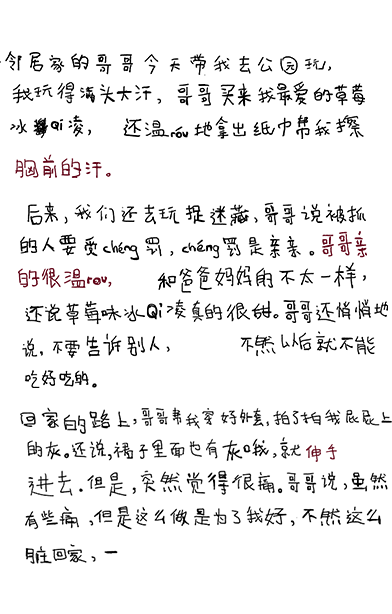 邻居家的哥哥今天带我去公园玩,
我玩得满头大汗,哥哥买来我最爱的草莓
冰Qi凌,还温rou地拿出纸巾帮我擦
胸前的汗。
后来,我们还去玩捉迷藏,哥哥说被抓
的人要受chéng罚,chéng罚是亲亲。哥哥亲
的很温rou,和爸爸妈妈的不太一样,
还说草莓味冰Qi凌真的很甜。哥哥还悄悄地
说,不要告诉别人,不然以后就不能
吃好吃的。
回家的路上,哥哥帮我穿好外套,拍了拍我屁屁上
的灰。还说,裙子里面也有灰哦,就伸手
进去。但是,突然觉得很痛。哥哥说,虽然
有些痛,但是这么做是为了我好,不然这么
脏回家,一